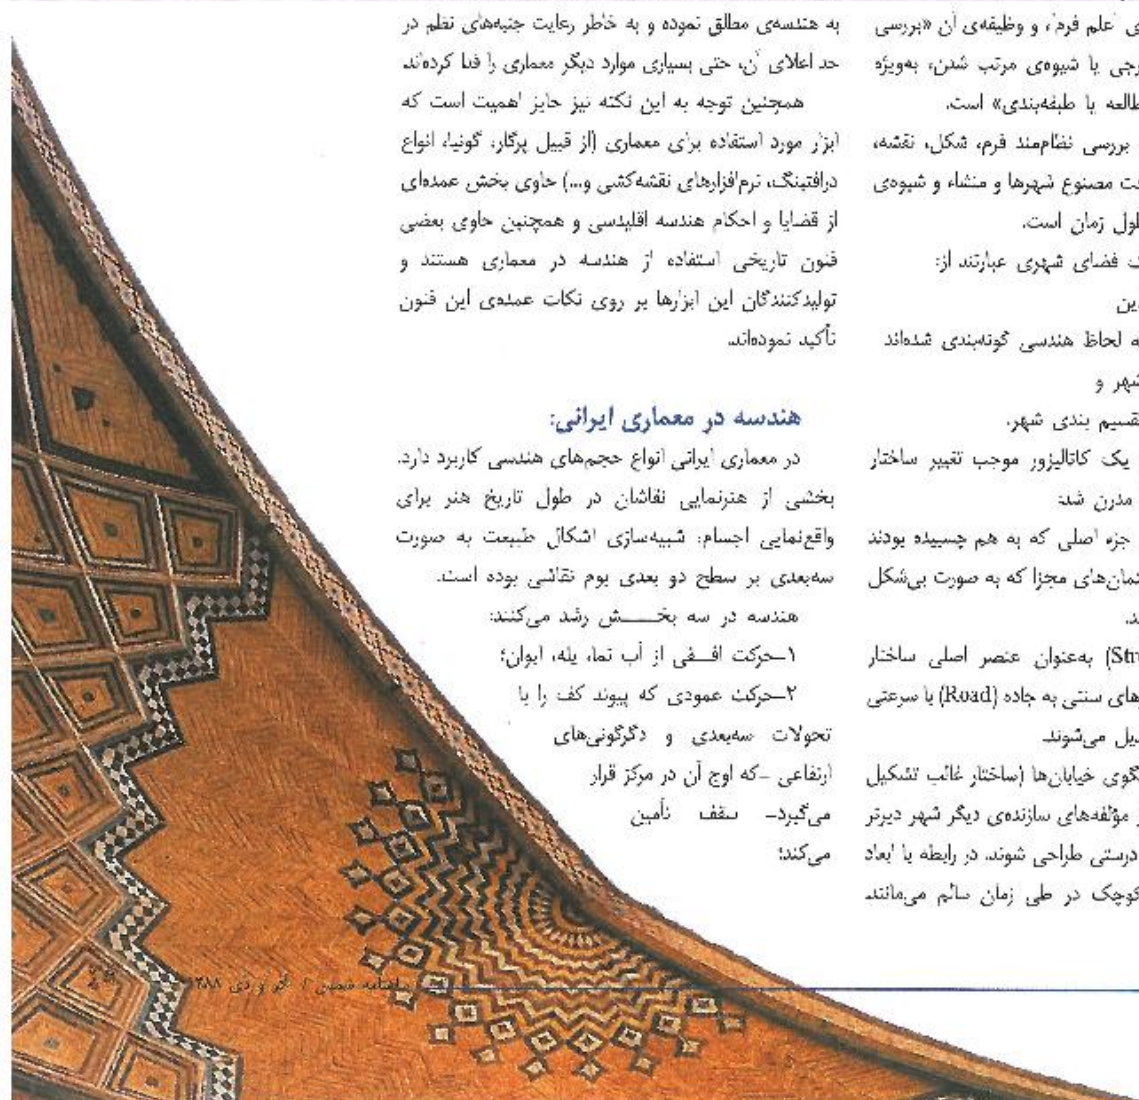 ی 'علم فرم'، و وظیفه‌ی آن «بررسی
وجی یا شیوه‌ی مرتب شدن، به‌ویژه
طالعه یا طبقه‌بندی» است.
بررسی نظام‌مند فرم، شکل، نقشه،
مصنوع شهرها و منشاء و شیوه‌ی
طول زمان است.
فضای شهری عبارتند از:
ین
ه لحاظ هندسی گونه‌بندی شده‌اند
شهر و
قسیم بندی شهر.
یک کاتالیزور موجب تغییر ساختار
مدرن شد:
جزء اصلی که به هم چسبیده بودند
تمان‌های مجزا که به صورت بی‌شکل
ند.
Str) به‌عنوان عنصر اصلی ساختار
رهای سنتی به جاده (Road) با سرعتی
دیل می‌شوند.
گوی خیابان‌ها (ساختار غالب تشکیل
مؤلفه‌های سازنده‌ی دیگر شهر دیرتر
درستی طراحی شوند، در رابطه با ابعاد
کوچک در طی زمان سالم می‌مانند.
به هندسه‌ی مطلق نموده و به خاطر رعایت جنبه‌های نظم در
حد اعلای آن، حتی بسیاری موارد دیگر معماری را فدا کرده‌اند.
همچنین توجه به این نکته نیز حایز اهمیت است که
ابزار مورد استفاده برای معماری (از قبیل پرگار، گونیا، انواع
درافتینگ، نرم‌افزارهای نقشه‌کشی و...) حاوی بخش عمده‌ای
از قضایا و احکام هندسه اقلیدسی و همچنین حاوی بعضی
فنون تاریخی استفاده از هندسه در معماری هستند و
تولیدکنندگان این ابزارها بر روی نکات عمده‌ی این فنون
تأکید نموده‌اند.
هندسه در معماری ایرانی:
در معماری ایرانی انواع حجم‌های هندسی کاربرد دارد.
بخشی از هنرنمایی نقاشان در طول تاریخ هنر برای
واقع‌نمایی اجسام، شبیه‌سازی اشکال طبیعت به صورت
سه‌بعدی بر سطح دو بعدی بوم نقاشی بوده است.
هندسه در سه بخش رشد می‌کنند:
۱-حرکت افقی از آب نما، پله، ایوان؛
۲-حرکت عمودی که پیوند کف را با
تحولات سه‌بعدی و دگرگونی‌های
ارتفاعی -که اوج آن در مرکز قرار
می‌گیرد- سقف تأمین
می‌کند؛
آذر و دی ۱۳۸۸